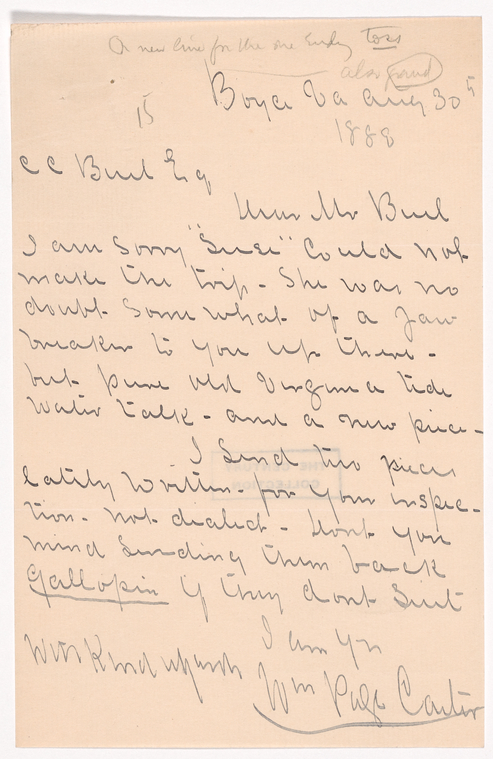 A new line for the one Ending toes
also found
Boyce Va Aug 30th
1888
15
C C Buel Esq
Dear Mr Buel
I am Sorry "Susi" Could not
make the trip - She was no
doubt Some what of a Jaw
breaker to you up there -
but pure old Virginia tide
Water talk - and a new piece -
I Send two pieces
lately Written - for your inspec-
tion - not dialect - Dont you
mind Sending them back
Gallopin if they dont Suit
I am Yrs
With Kind regards
Wm Page Carter
THE CENTURY
COLLECTION